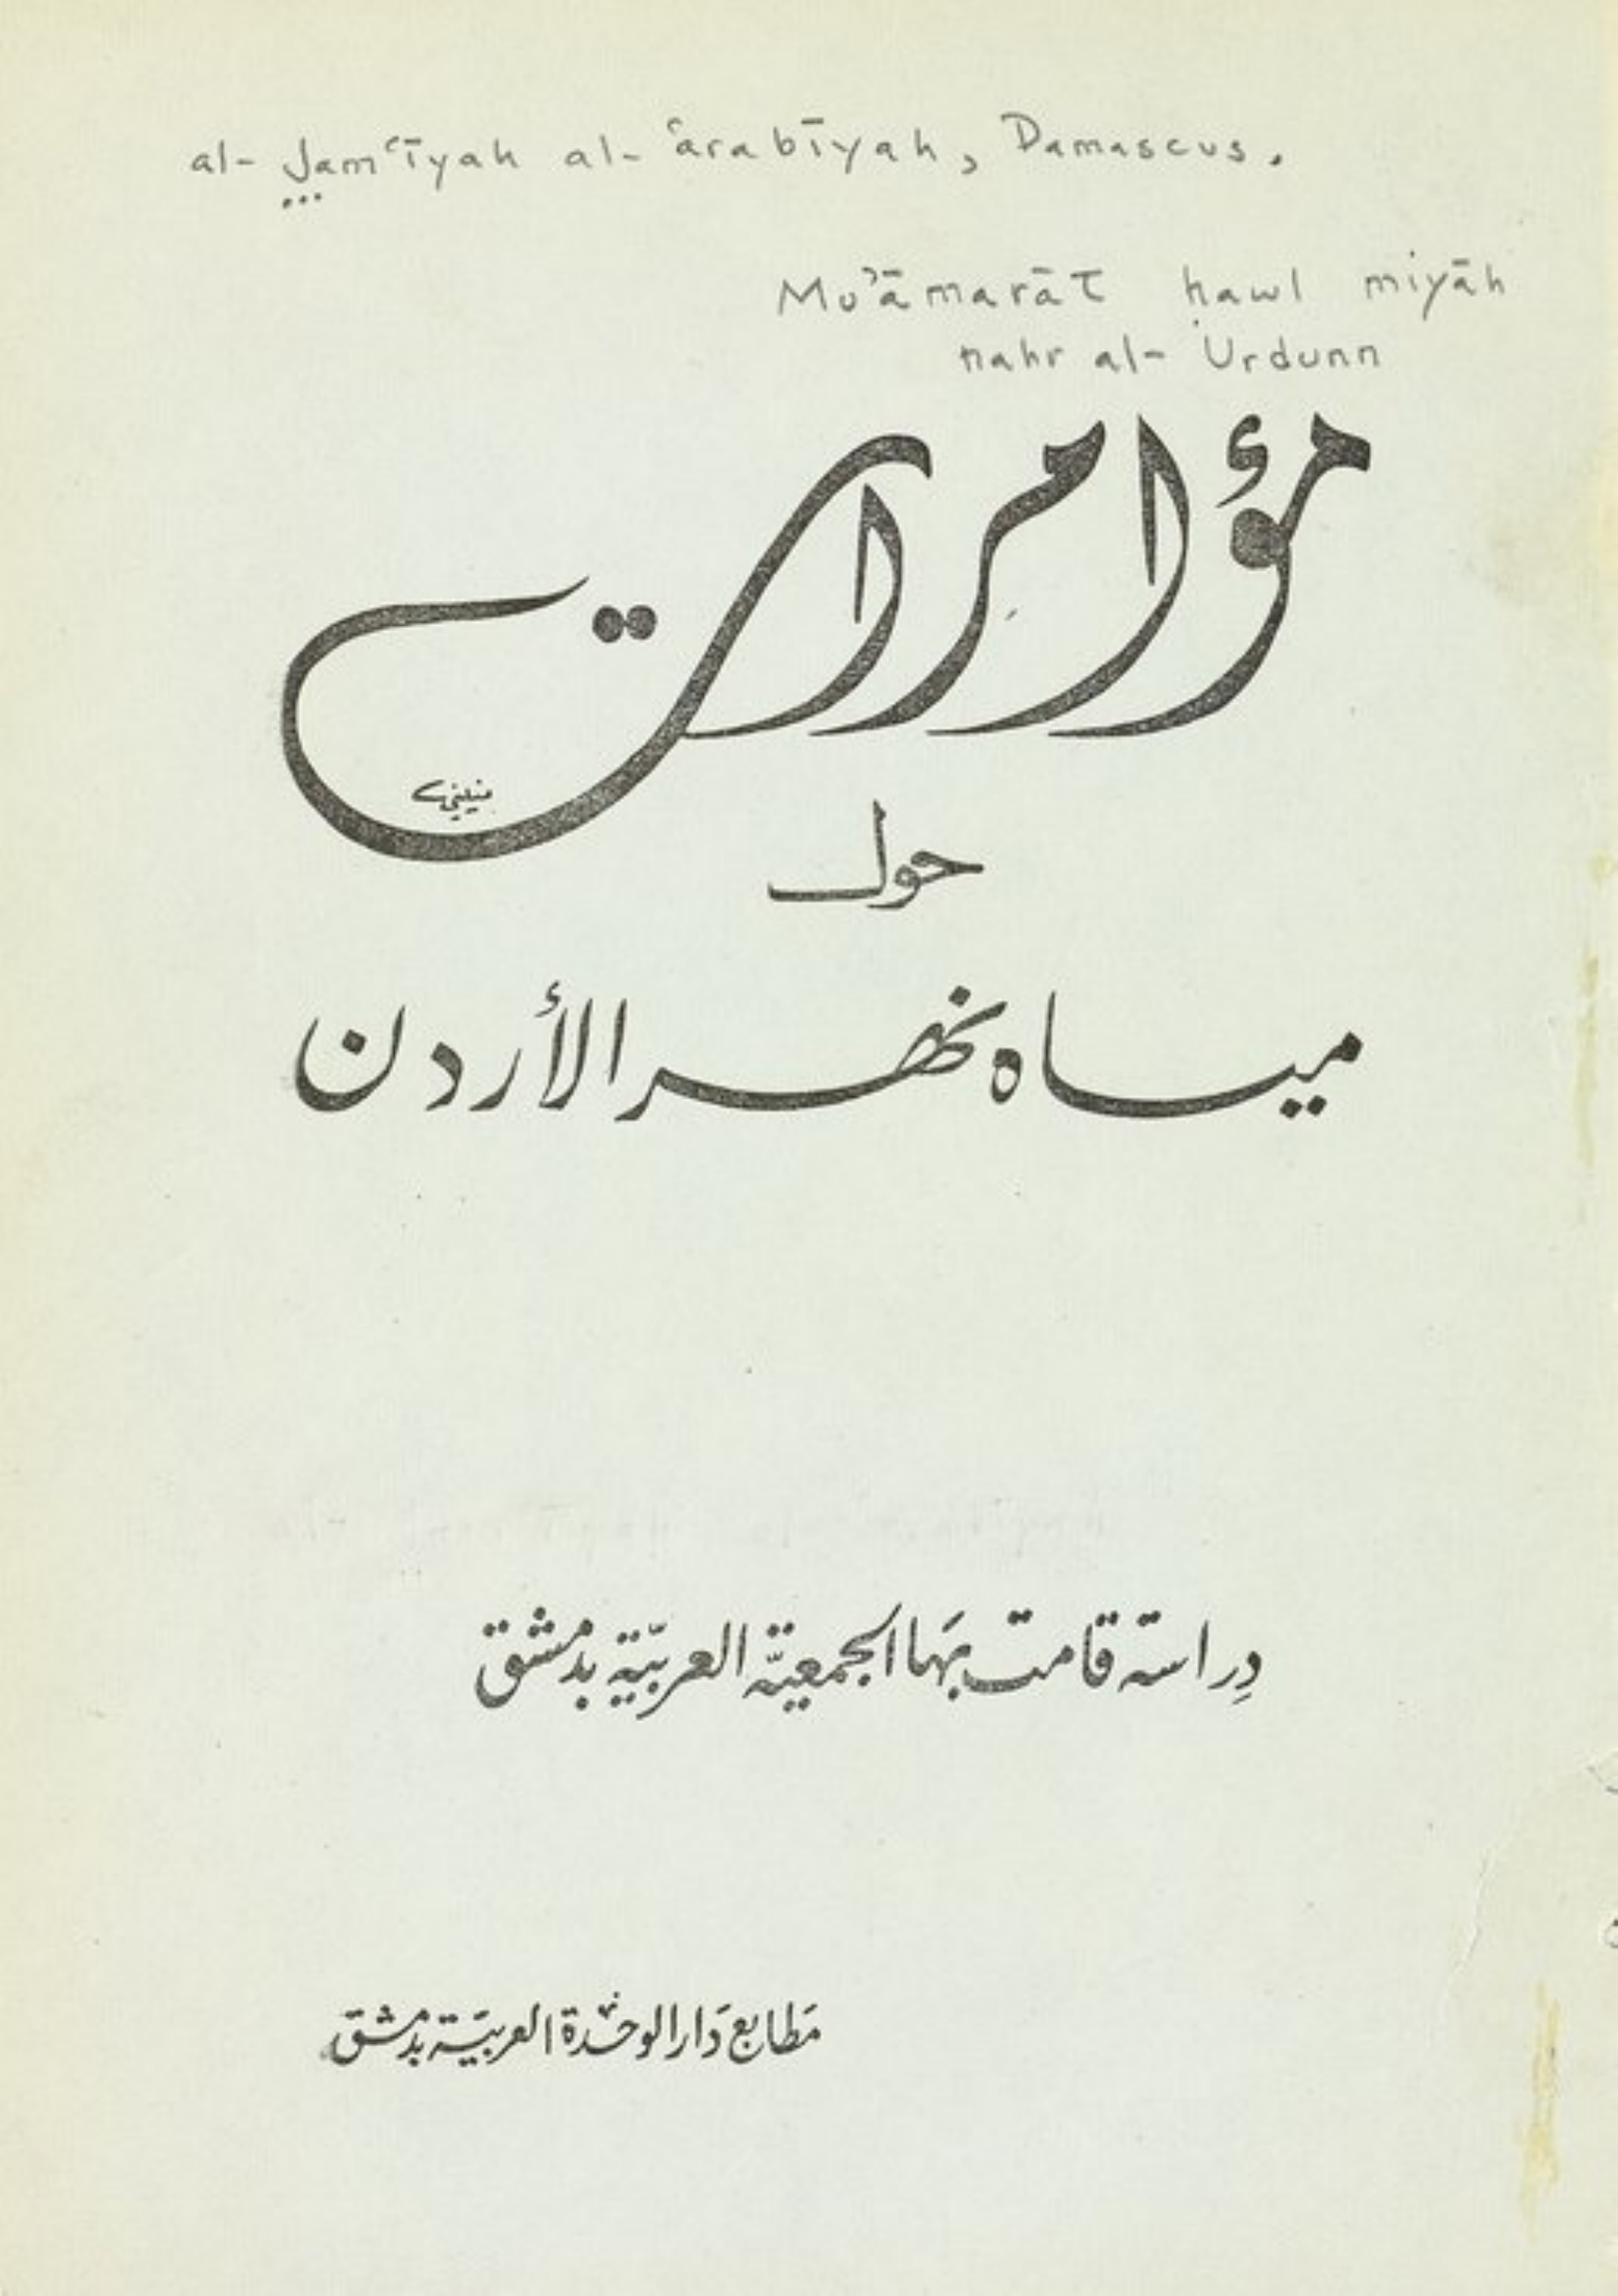 al-Jam'īyah al-'arabīyah, Damascus.
Mu'āmarāt ḥawl miyāh
nahr al-Urdunn
مؤامرات
حول
مياه نهر الأردن
دراسة قامت بها الجمعيّة العربيّة بدمشق
مطابع دار الوحدة العربية بدمشق